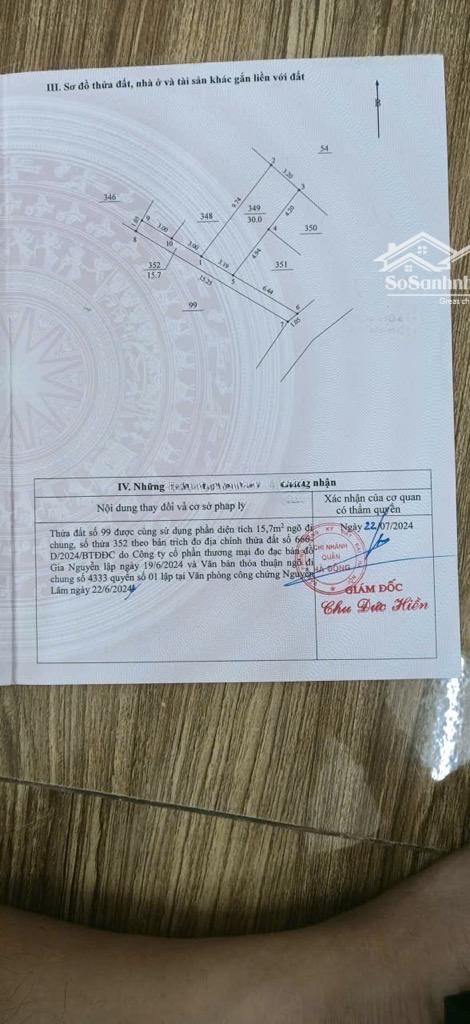 III. Sơ đồ thửa đất, nhà ở và tài sản khác gắn liền với đất
B
54
2
3.20
3
346
9.74
349
30.0
4.20
348
350
1.80
9
3.00
4
8
10
3.00
4.94
351
1
3.19
352
15.7
5
15.25
6.44
99
6
7
1.05
SoSanhNh
Great ch
IV. Những
nhận
Nội dung thay đổi và cơ sở pháp lý
Xác nhận của cơ quan
có thẩm quyền
Thửa đất số 99 được cùng sử dụng phần diện tích 15,7m² ngõ đi
chung, số thửa 352 theo bản trích đo địa chính thửa đất số 666
D/2024/BTĐĐC do Công ty cổ phần thương mại đo đạc bản đồ
Gia Nguyễn lập ngày 19/6/2024 và Văn bản thỏa thuận ngõ đi
chung số 4333 quyển số 01 lập tại Văn phòng công chứng Nguyễn
Lâm ngày 22/6/2024
Ngày 22/07/2024
CHI NHÁNH
QUẬN
HÀ ĐÔNG
GIÁM ĐỐC
Chu Đức Hiền